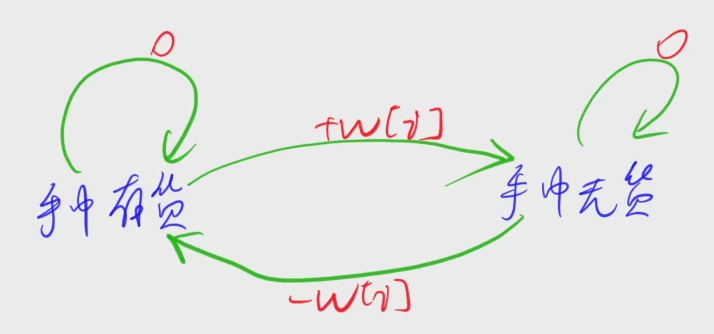 0
0
+w[i]
手中有货
手中无货
-w[i]